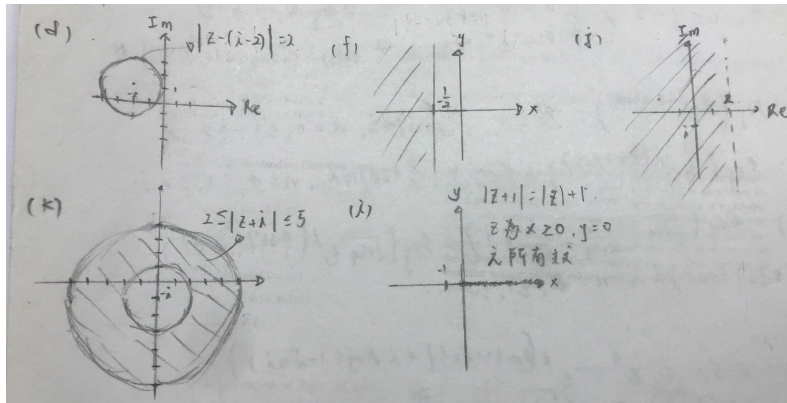 (d)
Im
|z-(i-2)|=2
-2
1
Re
(f)
y
-1/2
x
(j)
Im
2
Re
i
(k)
2≤|z+i|≤5
-i
(l)
y
|z+1|=|z|+1
z為x≥0,y=0
之所有数
-1
x